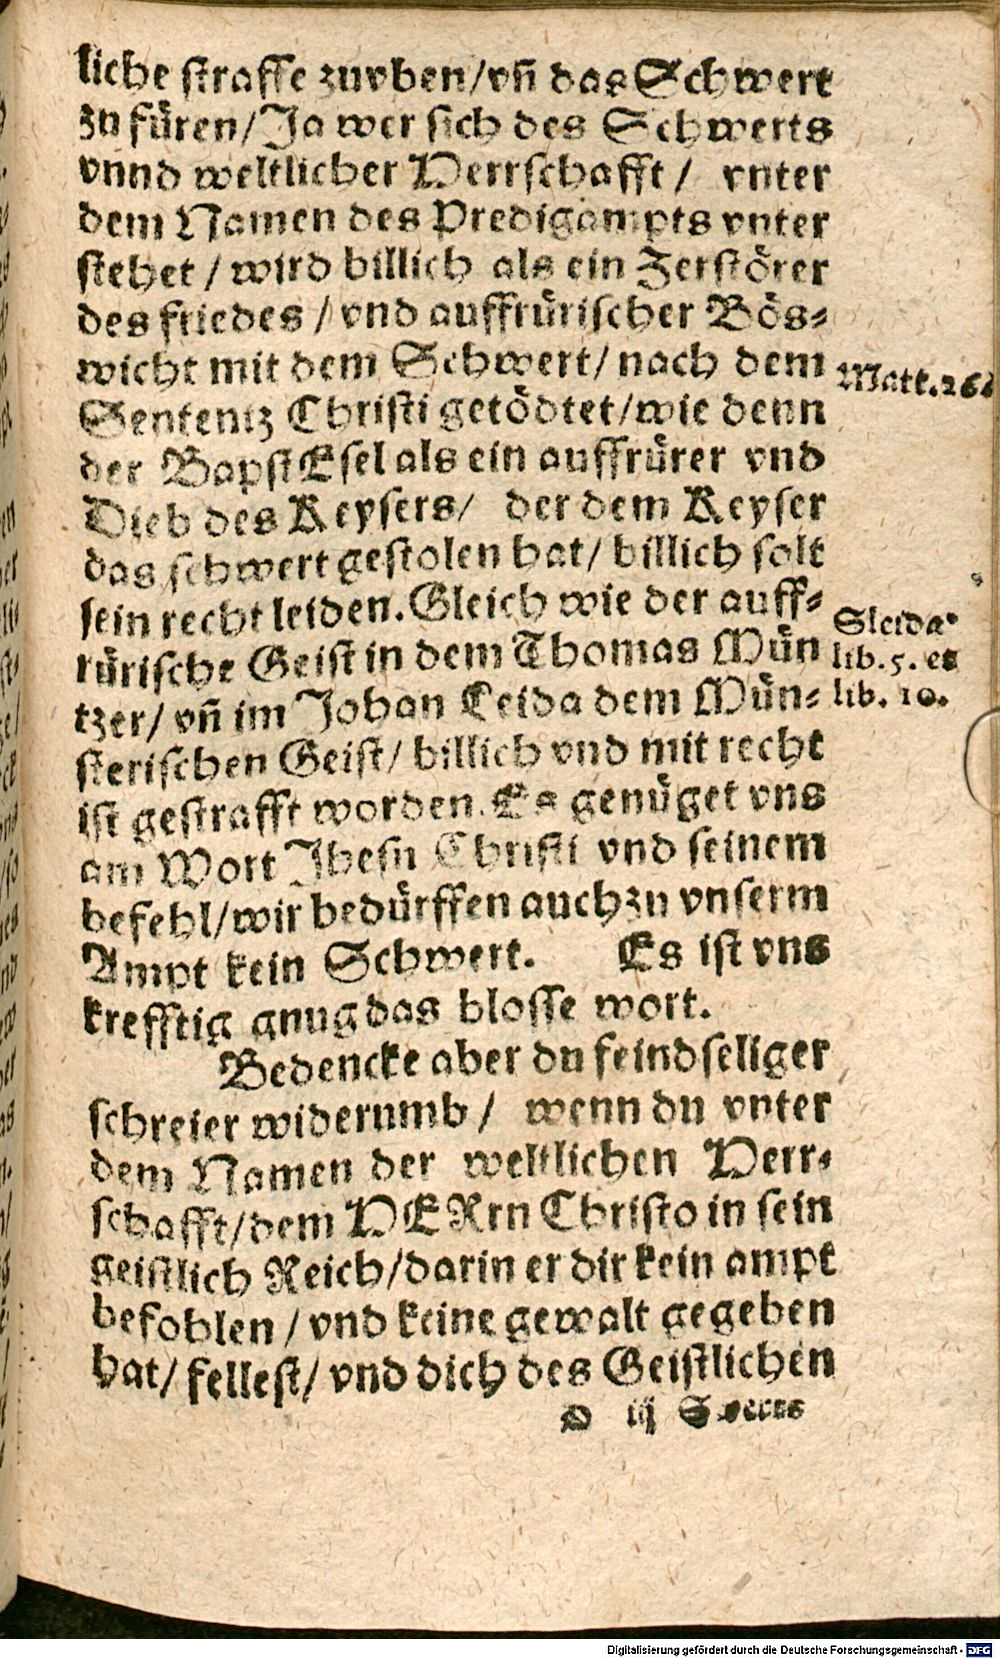 liche straffe zuvben/vn̄ das Schwert
zu füren/Ja wer sich des Schwerts
vnnd weltlicher Herrschafft / vnter
dem Namen des Predigampts vnter
stehet / wird billich als ein Zerstörer
des friedes / vnd auffrürischer Bös-
wicht mit dem Schwert/ nach dem
Matt.26.
Sententz Christi getödtet/wie denn
der BapstEsel als ein auffrürer vnd
Dieb des Keysers/ der dem Keyser
das schwert gestolen hat/ billich solt
sein recht leiden. Gleich wie der auff-
Sleida.
rürische Geist in dem Thomas Mün
lib. 5. et
tzer/ vn̄ im Johan Leida dem Mün-
lib. 10.
sterischen Geist/ billich vnd mit recht
ist gestrafft worden. Es genüget vns
am Wort Jhesu Christi vnd seinem
befehl/wir bedürffen auch zu vnserm
Ampt kein Schwert. Es ist vns
krefftig gnug das blosse wort.
Bedencke aber du feindseliger
schreier widerumb / wenn du vnter
dem Namen der weltlichen Herr-
schafft/dem HERrn Christo in sein
geistlich Reich/darin er dir kein ampt
befohlen / vnd keine gewalt gegeben
hat/ fellest/ vnd dich des Geistlichen
D iij
Digitalisierung gefördert durch die Deutsche Forschungsgemeinschaft - DFG